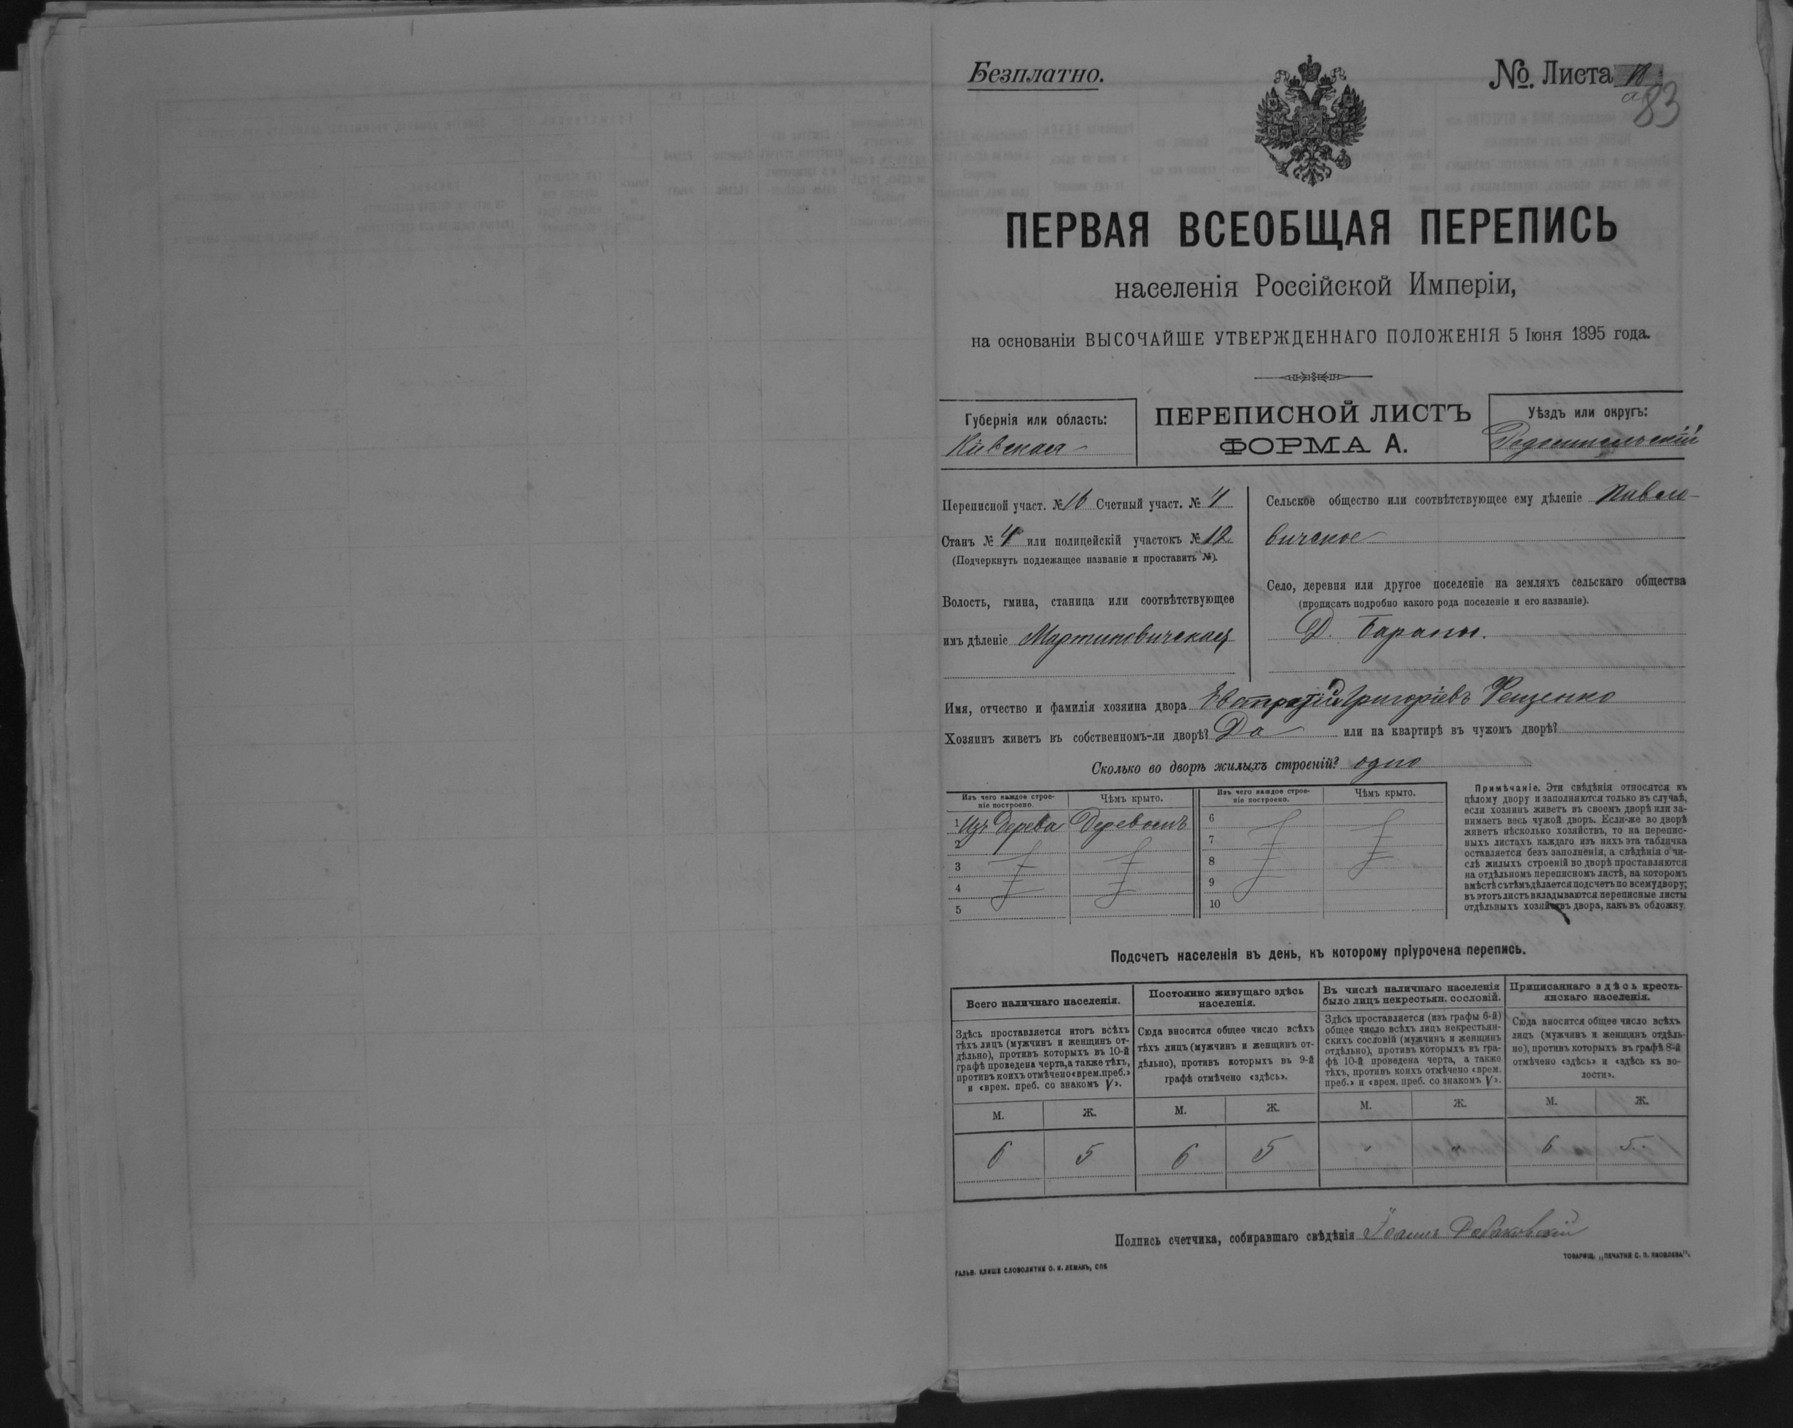 Безплатно.
№. Листа
83
ПЕРВАЯ ВСЕОБЩАЯ ПЕРЕПИСЬ
населенія Россійской Имперіи,
на основаніи ВЫСОЧАЙШЕ УТВЕРЖДЕННАГО ПОЛОЖЕНІЯ 5 Іюня 1895 года.
Губернія или область:
Кіевская
ПЕРЕПИСНОЙ ЛИСТЪ
ФОРМА А.
Уѣздъ или округъ:
Радомысльскій
Переписной участ. № 16 Счетный участ. № 4
Станъ № 4 или полицейскій участокъ № 12
(Подчеркнуть подлежащее названіе и проставить №).
Волость, гмина, станица или соотвѣтствующее
имъ дѣленіе Мартиновичская
Сельское общество или соотвѣтствующее ему дѣленіе
вичское
Село, деревня или другое поселеніе на земляхъ сельскаго общества
(прописать подробно какого рода поселеніе и его названіе).
Д. Бараны.
Имя, отчество и фамилія хозяина двора Евстратій Григоріевъ Фещенко
Хозяинъ живетъ въ собственномъ-ли дворѣ? Да или на квартирѣ въ чужомъ дворѣ?
Сколько во дворѣ жилыхъ строеній? одно
Изъ чего каждое строе-
ніе построено.
Чѣмъ крыто.
1 Изъ дерева Деревомъ
2
3
4
5
Изъ чего каждое строе-
ніе построено.
Чѣмъ крыто.
6
7
8
9
10
Примѣчаніе. Эти свѣдѣнія относятся къ
цѣлому двору и заполняются только въ случаѣ,
если хозяинъ живетъ въ своемъ дворѣ или за-
нимаетъ весь чужой дворъ. Если-же во дворѣ
живетъ нѣсколько хозяйствъ, то на перепис-
ныхъ листахъ каждаго изъ нихъ эта табличка
оставляется безъ заполненія, а свѣдѣнія о чи-
слѣ жилыхъ строеній во дворѣ проставляются
на отдѣльномъ переписномъ листѣ, на которомъ
вмѣстѣ съ тѣмъ дѣлается подсчетъ по всему двору;
въ этотъ листъ вкладываются переписные листы
отдѣльныхъ хозяйствъ двора, какъ въ обложку.
Подсчетъ населенія въ день, къ которому пріурочена перепись.
Всего наличнаго населенія.
Здѣсь проставляется итогъ всѣхъ
тѣхъ лицъ (мужчинъ и женщинъ от-
дѣльно), противъ которыхъ въ 10-й
графѣ проведена черта, а также тѣхъ,
противъ коихъ отмѣчено «врем. преб.»
и «врем. преб. со знакомъ V».
М. Ж.
6 5
Постоянно живущаго здѣсь
населенія.
Сюда вносится общее число всѣхъ
тѣхъ лицъ (мужчинъ и женщинъ от-
дѣльно), противъ которыхъ въ 9-й
графѣ отмѣчено «здѣсь».
М. Ж.
6 5
Въ числѣ наличнаго населенія
было лицъ некрестьян. сословій.
Здѣсь проставляется (изъ графы 6-й)
общее число всѣхъ лицъ некрестьян-
скихъ сословій (мужчинъ и женщинъ
отдѣльно), противъ которыхъ въ гра-
фѣ 10-й проведена черта, а также
тѣхъ, противъ коихъ отмѣчено «врем.
преб.» и «врем. преб. со знакомъ V».
М. Ж.
Приписаннаго здѣсь кресть-
янскаго населенія.
Сюда вносится общее число всѣхъ
лицъ (мужчинъ и женщинъ отдѣль-
но), противъ которыхъ въ графѣ 8-й
отмѣчено «здѣсь» и «здѣсь въ во-
лости».
М. Ж.
6 5.
Подпись счетчика, собиравшаго свѣдѣнія Іоаннъ
ГАЛЬВ. КЛИШЕ СЛОВОЛИТНИ О. И. ЛЕМАНЪ, СПБ
ТОВАРИЩ. „ПЕЧАТНЯ С. П. ЯКОВЛЕВА".